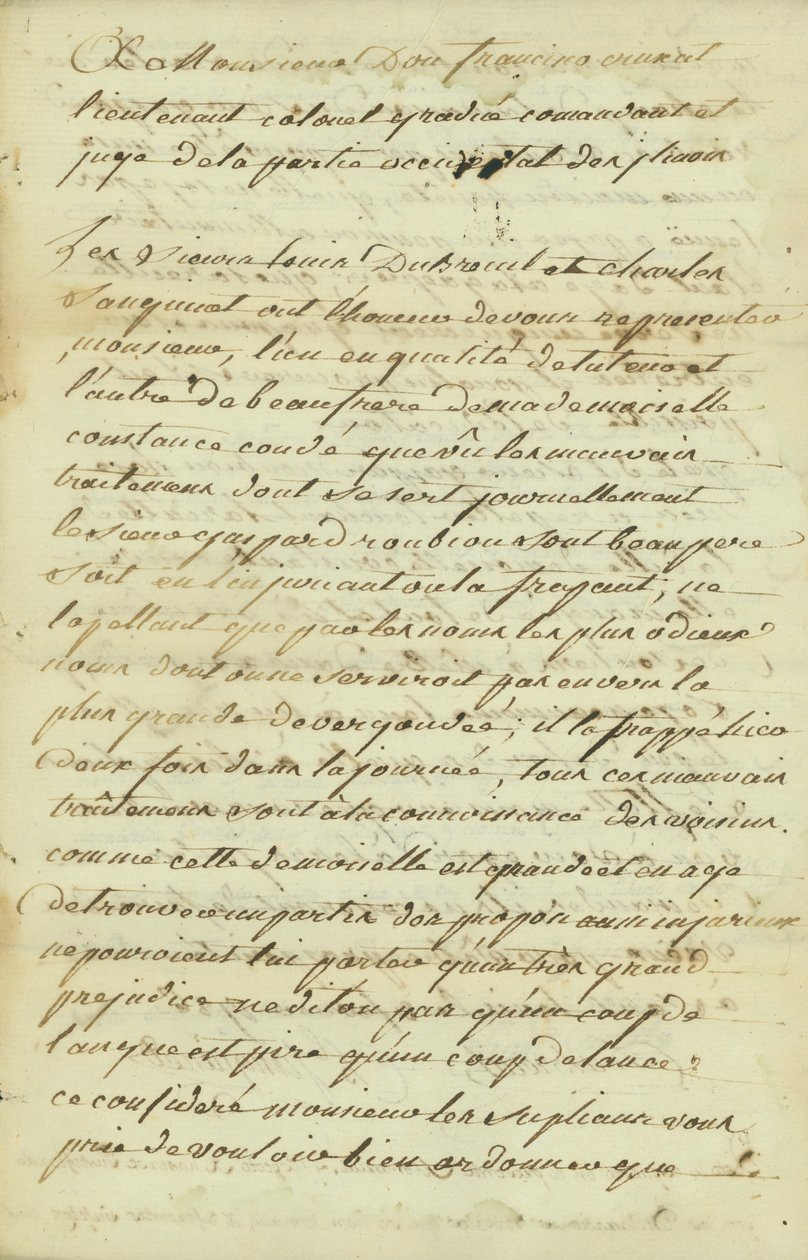 A Monsieur Don francisco cruzat
lieutenant colonel gradué comandant et
juge de la partie occidental des jlinois
Les sieurs louis DuBreuil et charles
Sanguinet ont l'honneur de vous representer
monsieur, l'un en qualité de tuteur et
l'autre de beaufrere de mademoiselle
constance condé que vû les mauvais
traitemens dont se sert journellement
le sieur gaspard roubiou sont beaupere
soit en l'injuriant ou la frapant, ne
lapellant que par les noms les plus odieux
noms dont on ne serviroit pas envers la
plus grande devergondée; il la frappé hier
deux fois dans la journée, tous ces mauvais
traîtemens sont à la connoissance des voisins.
comme cette demoiselle est grande et en age
de trouver un partis des propos aussi injurieux
ne pouroient lui porter qu'un très grand
prejudice ne dit on pas qu'un coup de
langue est pire qu'un coup de lance
ce consideré monsieur les supliants vous
prie de vouloir bien ordonner que